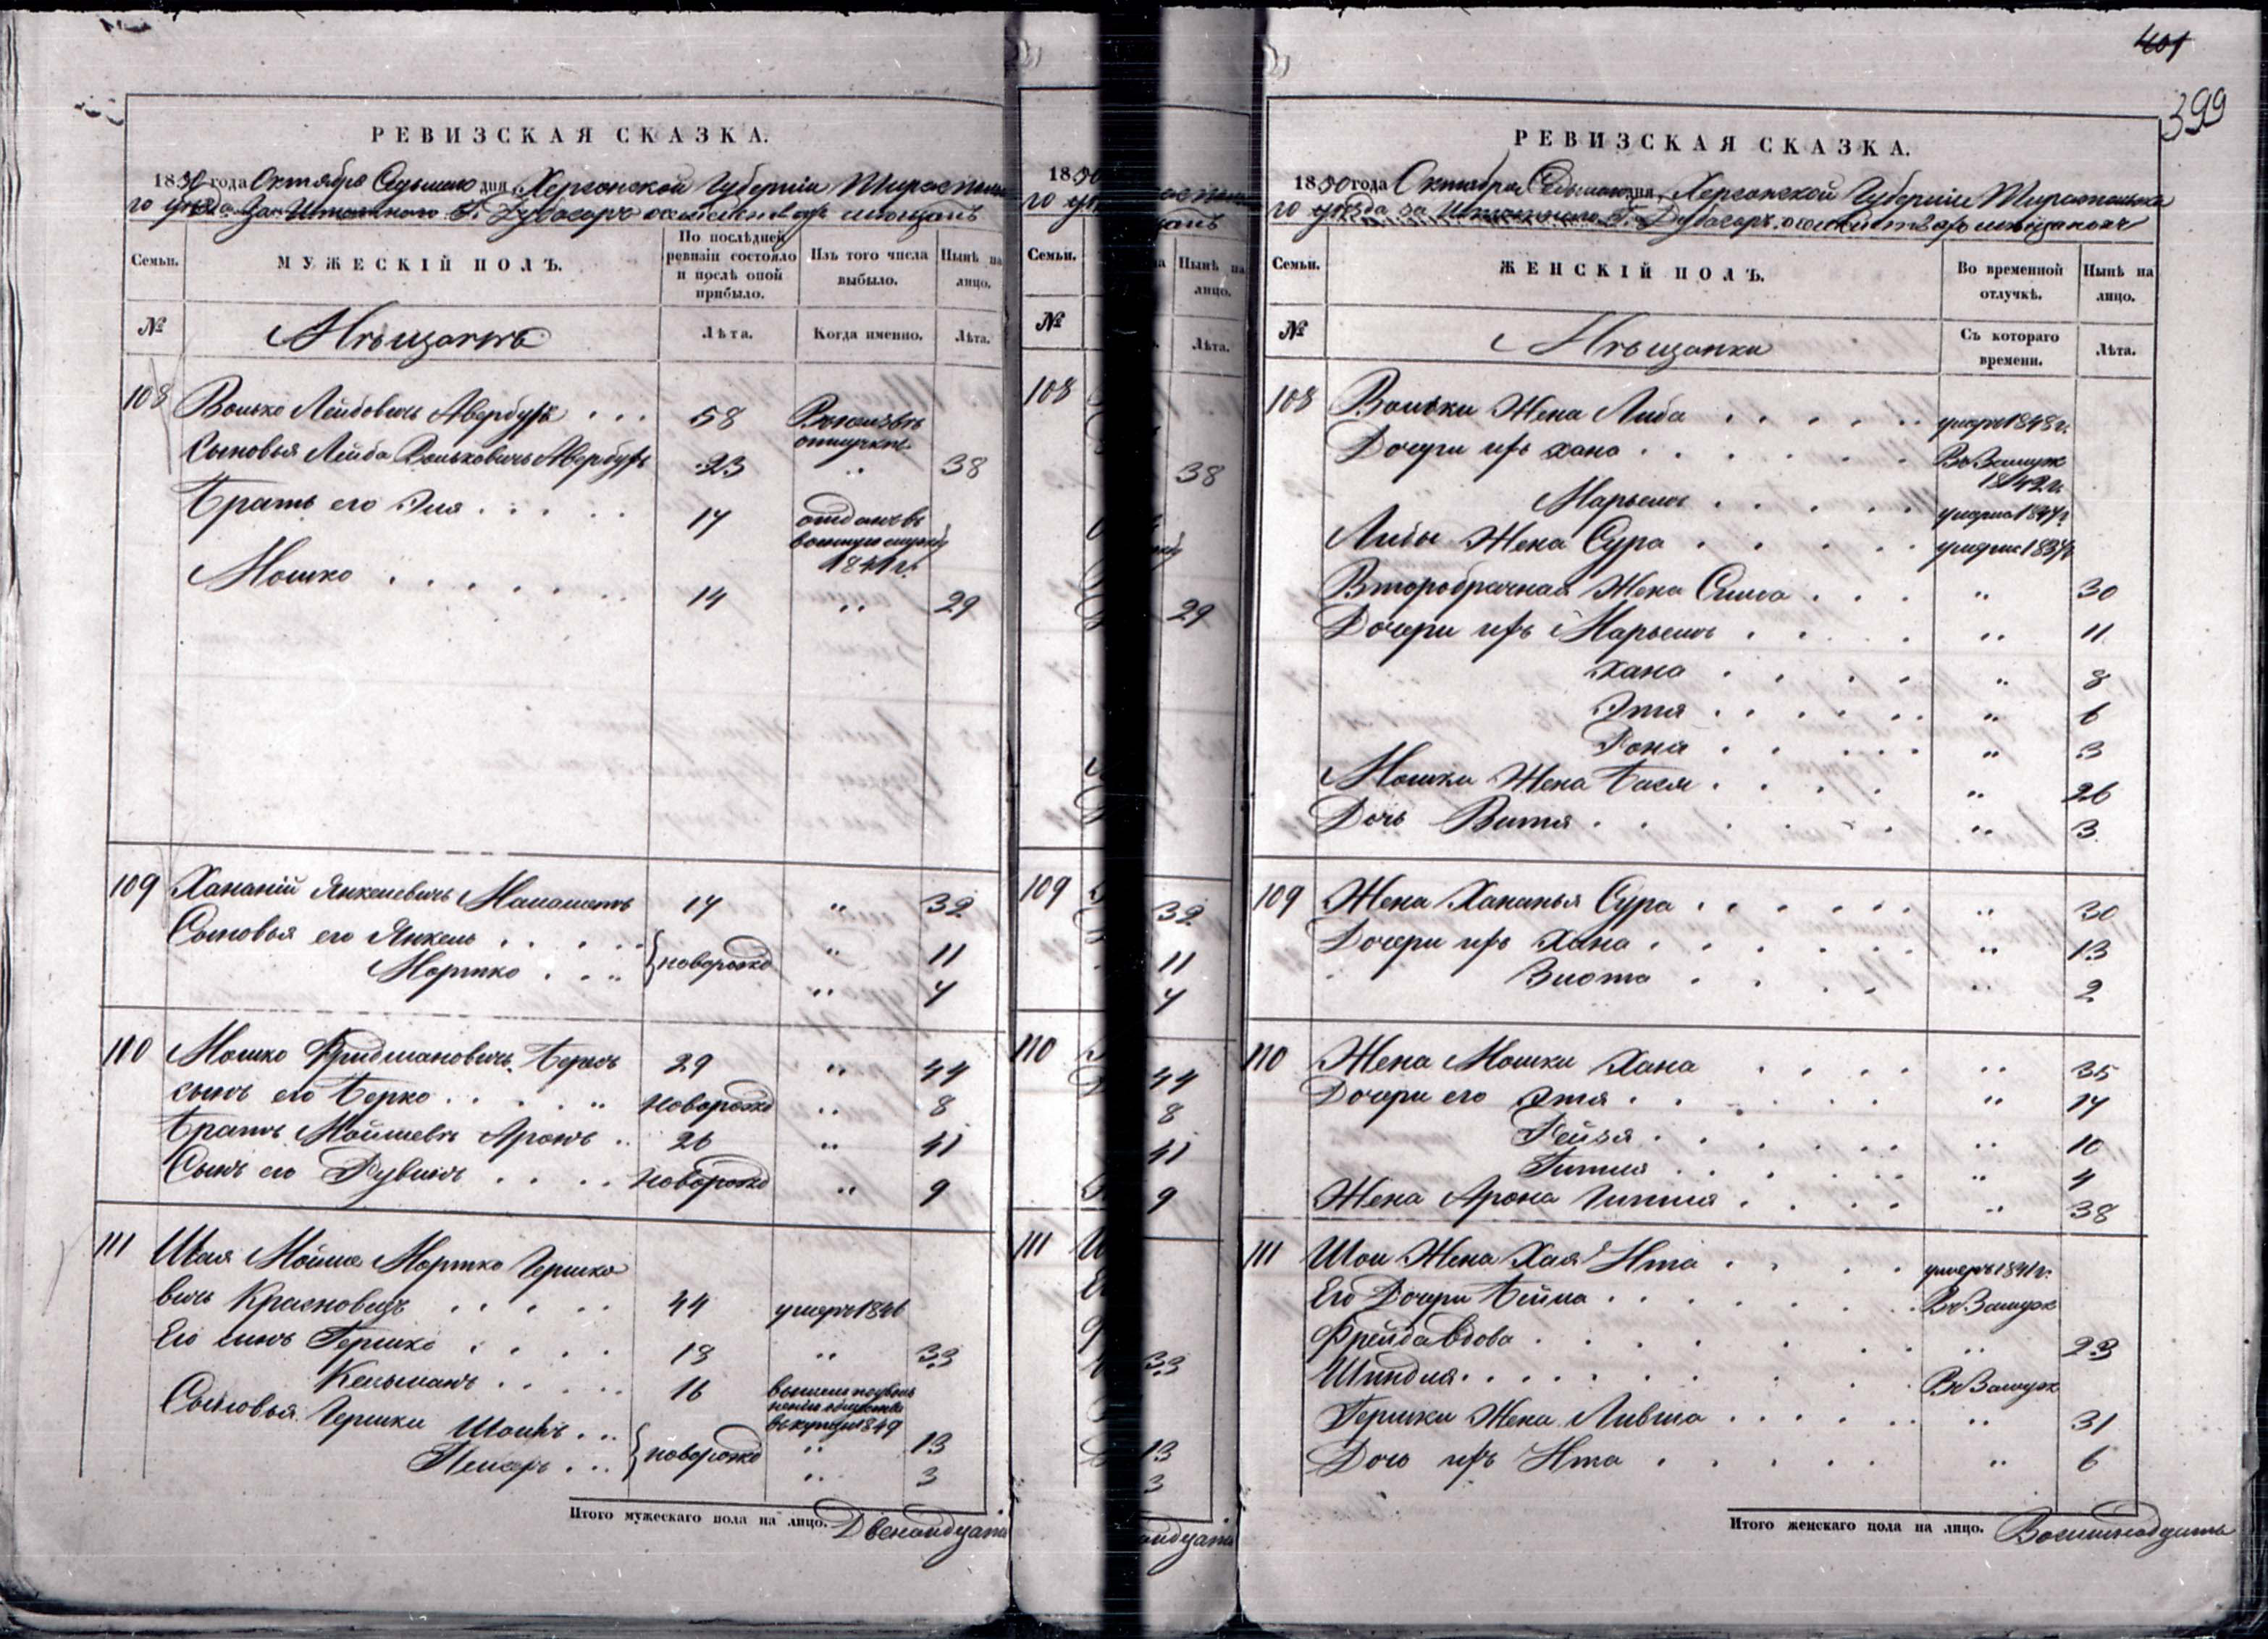 РЕВИЗСКАЯ СКАЗКА.
1850 года Октября Седьмаго дня, Херсонской Губерніи Тирасполька
го уѣзда Заштатнаго Г. Дубосаръ о мѣщанъ
Семьи.
МУЖЕСКІЙ ПОЛЪ.
По послѣдней ревизіи состояло и послѣ оной прибыло.
Изъ того числа выбыло.
Нынѣ на лицо.
№
Мѣщанъ
Лѣта.
Когда именно.
Лѣта.
108 Волько Лейбовичъ Авербухъ . . . 58
отлучкѣ
Сыновья Лейба Вольковичъ Авербухъ 23 " 38
Братъ его Эля . . . . . 17 отданъ въ
военную службу
1841 г.
Мошко . . . . . . . 14 " 29
109 Хананій Янкелевичъ 17 " 32
Сыновья его Янкель . . . . . новорожд " 11
Мортко . . . " 4
110 Мошко Фридмановичъ 29 " 44
сынъ его Берко . . . . . новорожд " 8
Братъ Мошки Аронъ . . 26 " 41
Сынъ его Рувинъ . . . . новорожд " 9
111 Шая Мойше Мортко Гершко
вичъ Красновецъ . . . . . 44 умеръ 1846
Его сынъ Гершко . . . . . 18 " 33
Кельманъ . . . . . 16
въ купцы 1849
Сыновья Гершки Шоилъ . . . новорожд " 13
Пейсаръ . . . " 3
Итого мужескаго пола на лицо. Двенадцать
18 50
го уѣ
Семьи.
Нынѣ на лицо.
№
Лѣта.
108
38
29
109
32
11
4
110
44
8
41
9
111
33
13
3
401
399
РЕВИЗСКАЯ СКАЗКА.
1850 года Октября Седьмаго дня, Херсонской Губерніи Тирасполька
го уѣзда Заштатнаго Г. Дубосаръ о мѣщанкахъ
Семьи.
ЖЕНСКІЙ ПОЛЪ.
Во временной отлучкѣ.
Нынѣ на лицо.
№
Мѣщанки
Съ котораго времени.
Лѣта.
108 Вольки Жена Либа . . . . . . умерла 1848 г.
Дочери ихъ Хана . . . . . . Въ Замуж
1842 г.
Марьемъ . . . . . умерла 1847 г
Лейбы Жена Сура . . . . . умерла 1837 г
Второбрачная Жена Сима . . . " 30
Дочери ихъ Марьемъ . . . . . " 11
Хана . . . . . " 8
Этя . . . . . . " 6
Роня . . . . . . " 3
Мошки Жена Бася . . . . . " 26
Дочь Витя . . . . . . . " 3
109 Жена Хананья Сура . . . . . . " 30
Дочери ихъ Хана . . . . . . . " 13
Злота . . . . . " 2
110 Жена Мошки Хана . . . . " 35
Дочери его Этя . . . . . . " 17
Рейзя . . . . . . " 10
Гитля . . . . . . " 4
Жена Арона Гитля . . . . . " 38
111 Шои Жена Хая Ита . . . . . умерла 1841 г.
Его Дочери Бейла . . . . . . Въ Замуж
Фрейда вдова . . . . . . . " 23
Шиндля . . . . . . . . Въ Замуж
Гершки Жена Ливша . . . . . . " 31
Дочь ихъ Ита . . . . . " 6
Итого женскаго пола на лицо. Восемнадцать